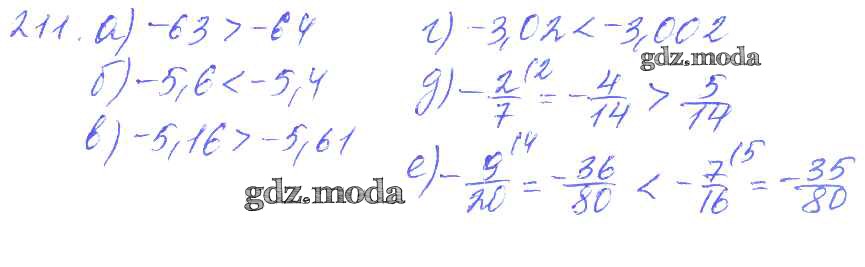 211. а) -63 > -64
б) -5,6 < -5,4
в) -5,16 > -5,61
г) -3,02 < -3,002
gdz.moda
д) -2/7 (2 = -4/14 > 5/14
е) -9/20 (4 = -36/80 < -7/16 (5 = -35/80
gdz.moda